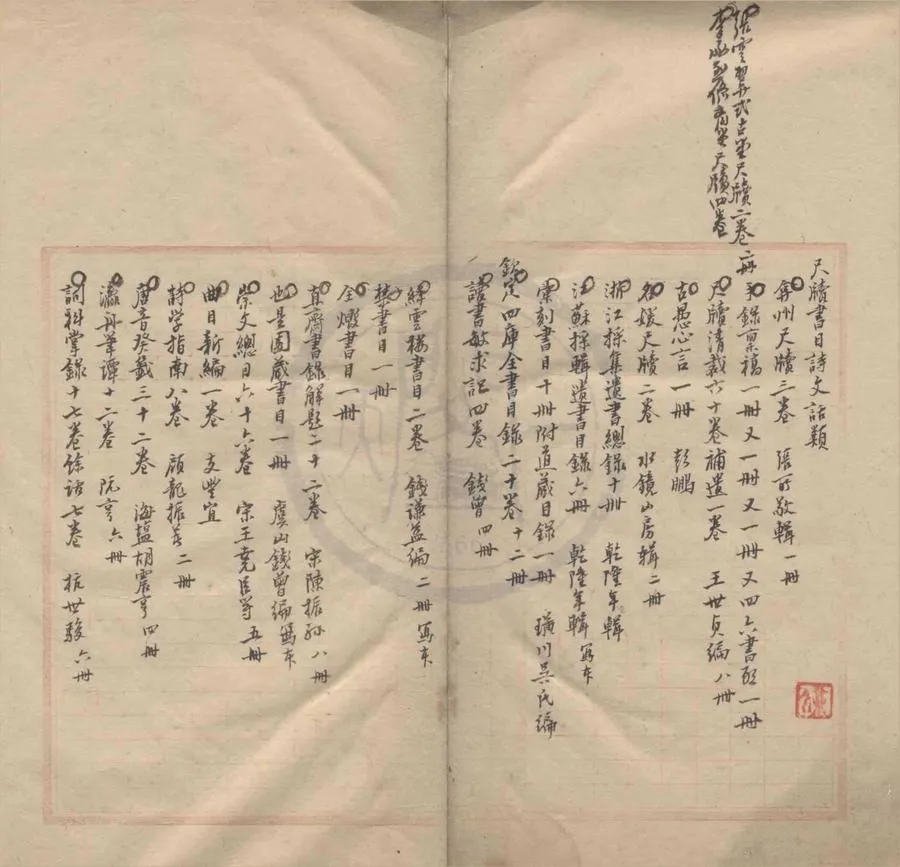 張雲翼式古堂尺牘二卷二冊
李漁尺牘四卷
尺牘書目詩文話類
弇州尺牘三卷 張所敬輯一冊
手錄稟稿一冊又一冊又一冊又四六書啟一冊
尺牘清裁六十卷補遺一卷 王世貞編八冊
古愚心言一冊 彭鵬
名媛尺牘二卷 水鏡山房輯二冊
浙江採集遺書總錄十冊 乾隆年輯
江蘇採輯遺書目錄六冊 乾隆年輯寫本
彙刻書目十冊附道藏目錄一冊 璜川吳氏編
欽定四庫全書目錄二十卷十二
讀書敏求記四卷 錢曾四冊
絳雲樓書目二卷 錢謙益編二冊寫本
禁書目一冊
全燬書目一冊
直齋書錄解題二十二卷 宋陳振孫八冊
也是園藏書目一冊 虞山錢曾編寫本
崇文總目六十六卷 宋王堯臣等五冊
曲目新編一卷 支豐宜
詩學指南八卷 顧龍振等二冊
唐音癸籤三十二卷 海鹽胡震亨四冊
瀛舟筆譚十二卷 阮亨六冊
詞科掌錄十七卷餘話七卷 杭世駿六冊